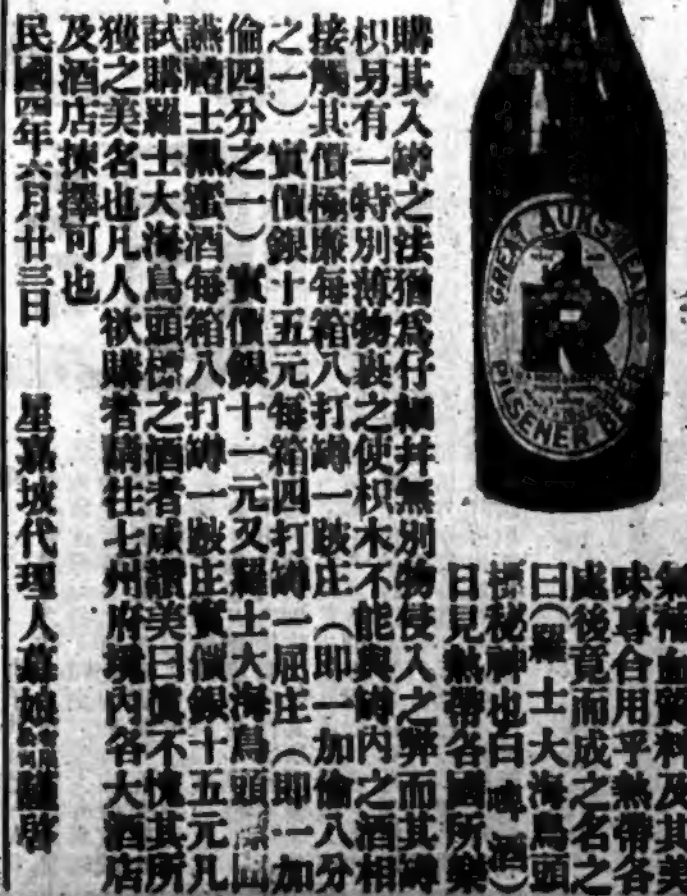 GREAT AUKS HEAD
R
PILSENER BEER
氣補血質料及其美
味專合用乎熱帶各
處後竟而成之名之
曰(羅士大海鳥頭
標秘神也白啤酒)
日見熱帶各國所樂
購其入罇之法猶為仔細并無別物侵入之弊而其罇
枳易有一特別薄物裹之使枳木不能與罇內之酒相
接觸其價極廉每箱八打罇一跛庄(即一加倫八分
之一)實價銀十五元每箱四打罇一屈庄(即一加
倫四分之一)實價銀十一元又羅士大海鳥頭
黑蜜酒每箱八打罇一跛庄實價銀十五元凡
試購羅士大海鳥頭標之酒者咸讚美曰真不愧其所
獲之美名也凡人欲購者請往七州府境內各大酒店
及酒店揀擇可也
民國四年六月廿三日 星嘉坡代理人